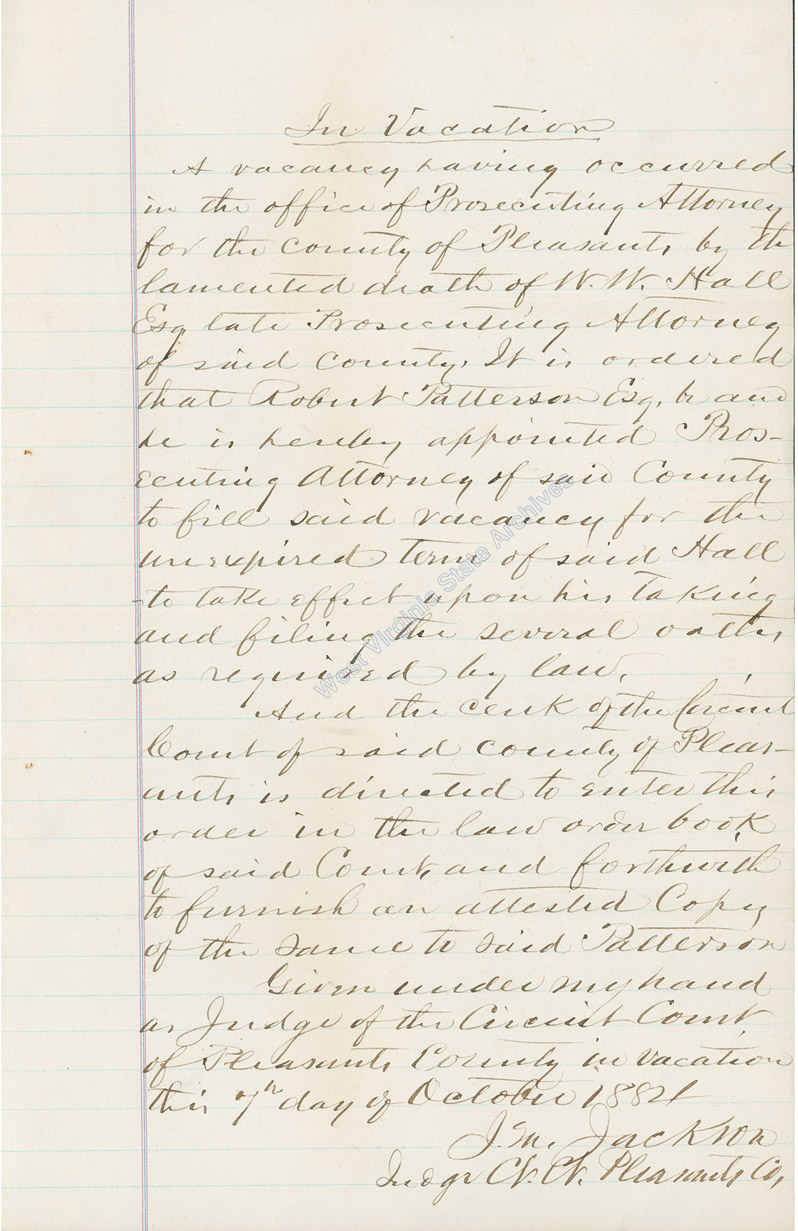 In Vacation
A vacancy having occurred
in the office of Prosecuting Attorney
for the county of Pleasants by the
lamented death of W. W. Hall
Esq late Prosecuting Attorney
of said county, It is ordered
that Robert Patterson Esq. be and
he is hereby appointed Pros-
ecuting Attorney of said County
to fill said vacancy for the
unexpired term of said Hall
to take effect upon his taking
and filing the several oaths
as required by law.
And the clerk of the Circuit
Court of said county of Pleas-
ants is directed to enter this
order in the law order book
of said Court, and forthwith
to furnish an attested Copy
of the same to said Patterson
Given under my hand
as Judge of the Circuit Court
of Pleasants County in vacation
this 7th day of October 1882
Jackson
Judge Ct. Ct. Pleasants Co,
West Virginia State Archives